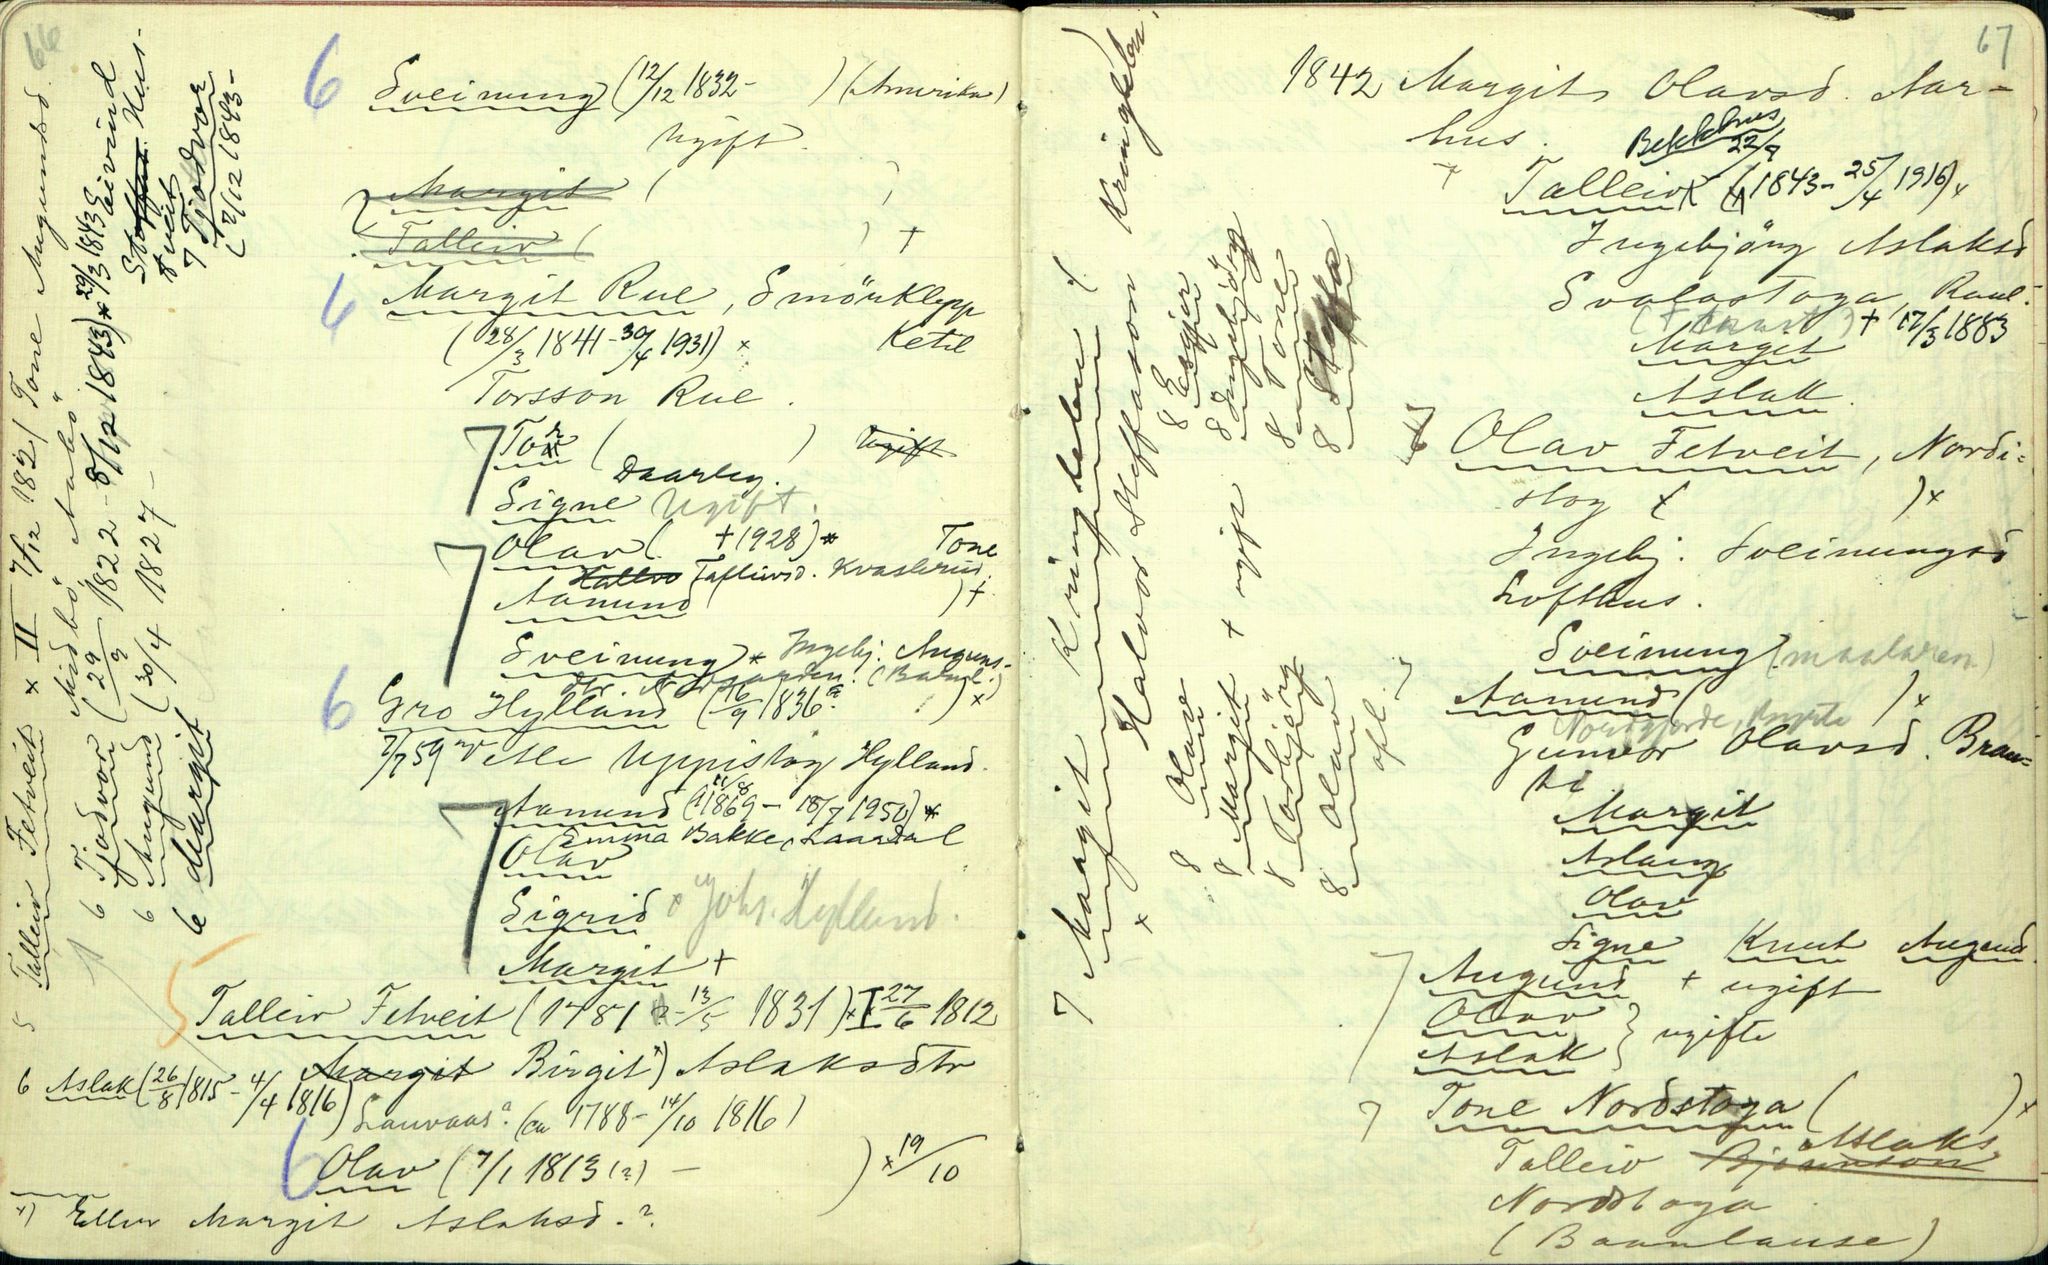 66
6 Sveinung (12/12 1832 - ) (Amerika)
Ugift.
Margit ( )
Talleiv ( ) +
6 Margit Rue, Smörklepp
(28/3 1841 - 30/4 1931) x Ketil
Torsson Rue.
7 Tor ( ) Ugift
Daarleg.
Signe Ugift.
7 Olav ( +1928) x Tone
Taflievsd. Kvaslerud.
Aamund ) +
Sveinung x Ingebj. Auguns-
dtr.
6 Gro Hylland (16/9 1836 ) x
7/7 59 Uppistog Hylland.
7 Aamund (11/8 1869 - 18/7 1950) x
Emma Bakke, Laardal
Olav
Sigrid x Johs. Hylland.
Margit +
5 Talleiv Fetveit (1781 ? - 13/5 1831) x I 27/6 1812
Margit Birgit x) Aslaksdtr
6 Aslak (26/8 1815 - 4/4 1816)
Lauvaas. (ca 1788 - 14/10 1816)
6 Olav (7/1 1813 (?) - ) x 19/10
x) Eller Margit Aslaksd. ?
5 Talleiv Fetveit x II 7/12 1821 Tone Augundsd.
6 Tjodvor (29/9 1822 - 8/12 1843) x 29/3 1843 Eivind
6 Augund (30/4 1827 -
6 Margit
Hus-
tveit
7 Tjodvor
(2/12 1843 -
67
7 Margit Kringlelen (
x Halvor Steffason Kringlelen.
8 Olav
8 Margit + ugift
8 Torbjörg
8 Olav
8 Esgjer
8 Ingebjörg
8 Tone
8 Steffa
1842 Margit Olavsd. Aar-
hus.
Bekkhus
7 Talleiv (22/9 1843 - 25/4 1916) x
Ingebjörg Aslaksd
Svalastoga, Raul.
+ 17/3 1883
Margit
Aslak.
7 Olav Fetveit, Nordi-
stog ( ) x
Ingebj. Sveinungsd
Lofthus.
Sveinung (maalaren)
Aamund ( ) x
Gunvor Olavsd. Brau-
ti
Margit
Aslaug
Olav
Signe Knut Augund.
7 Augund + ugift
Olav
Aslak } ugifte
7 Tone Nordstoga ( ) x
Talleiv Bjørnson Aslaks.
Nordstoga
(Baanlause)